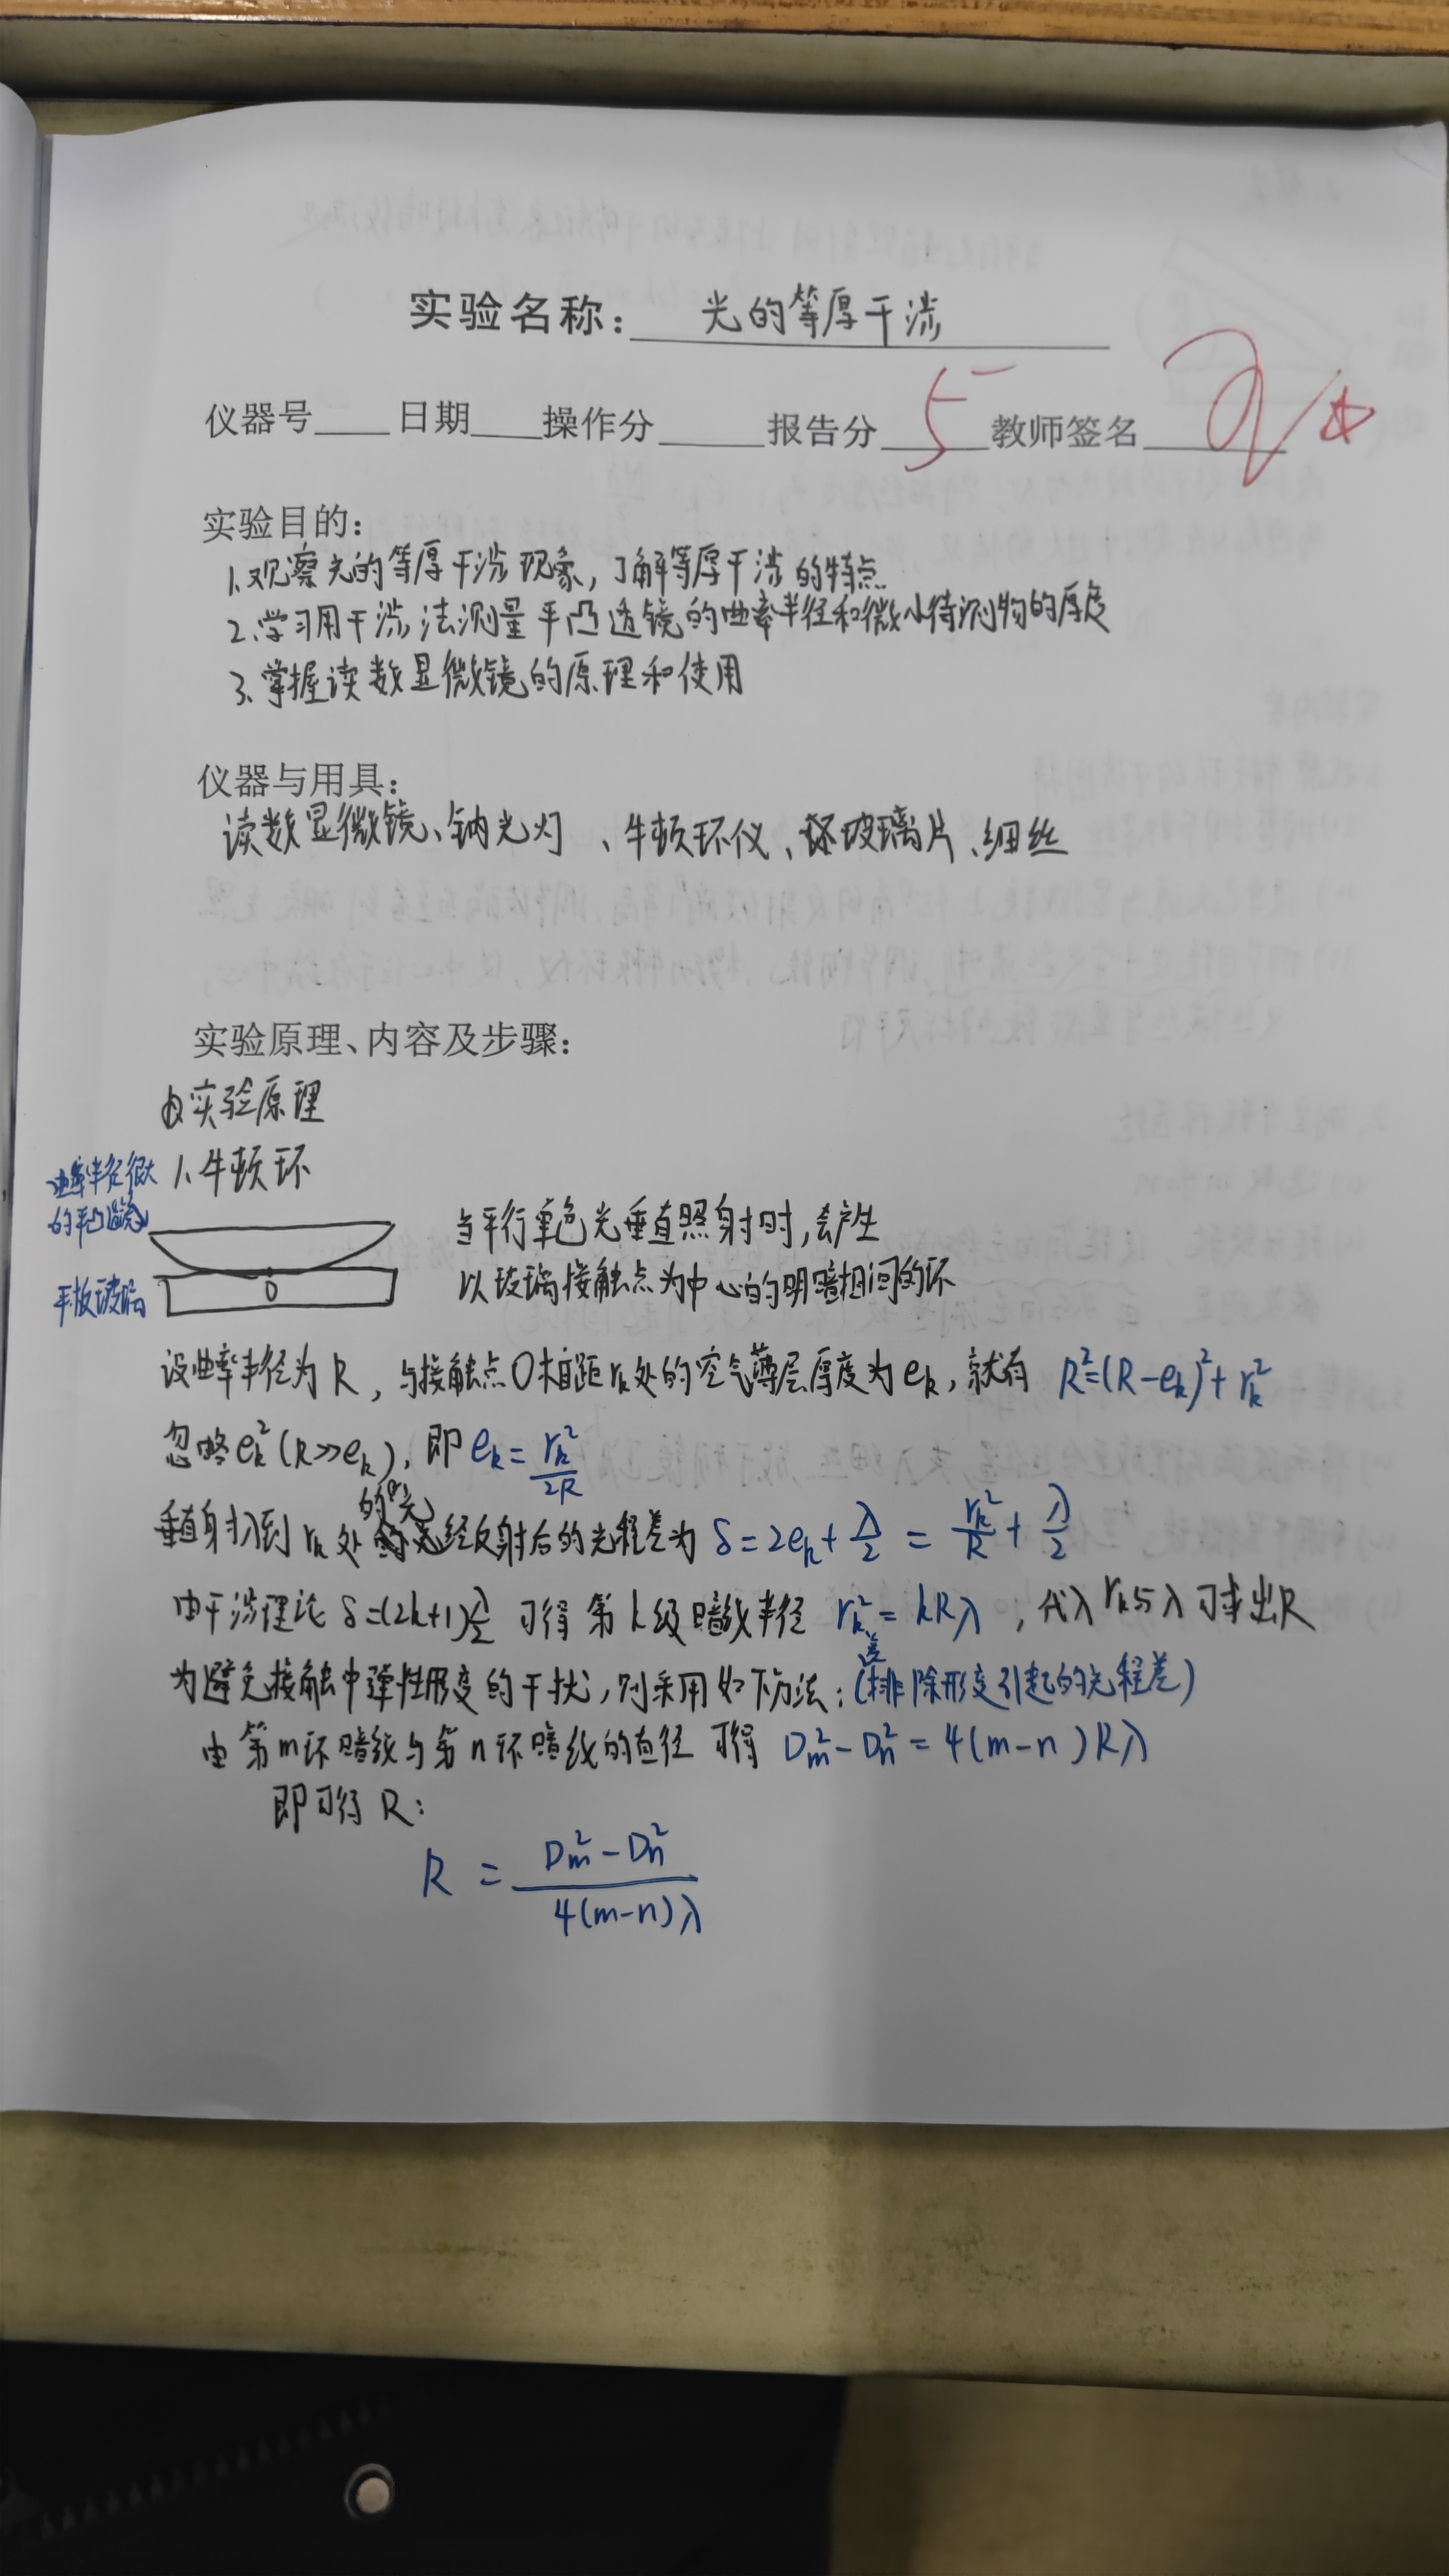 实验名称：光的等厚干涉
仪器号 日期 操作分 报告分 5⁻ 教师签名
实验目的：
1、观察光的等厚干涉现象，了解等厚干涉的特点
2、学习用干涉法测量平凸透镜的曲率半径和微小待测物的厚度
3、掌握读数显微镜的原理和使用
仪器与用具：
读数显微镜、钠光灯、牛顿环仪、玻璃片、细丝
实验原理、内容及步骤：
实验原理
1、牛顿环
曲率半径很大
的平凸透镜
平板玻璃
O
当平行单色光垂直照射时，会产生
以玻璃接触点为中心的明暗相间的环
设曲率半径为R，与接触点O相距rₖ处的空气薄层厚度为eₖ，就有 R²=(R-eₖ)²+rₖ²
忽略eₖ²(R≫eₖ)，即 eₖ=rₖ²/2R
垂直射入到rₖ处的光经反射后的光程差为 δ=2eₖ+λ/2 = rₖ²/R+λ/2
由干涉理论 δ=(2k+1)λ/2 可得第k级暗纹半径 rₖ²=kRλ，代入rₖ与λ可求出R
为避免接触中弹性形变的干扰，则采用如下方法：(排除形变引起的光程差)
由第m环暗纹与第n环暗纹的直径可得 Dm²-Dn²=4(m-n)Rλ
即可得R：
R = (Dm²-Dn²)/4(m-n)λ